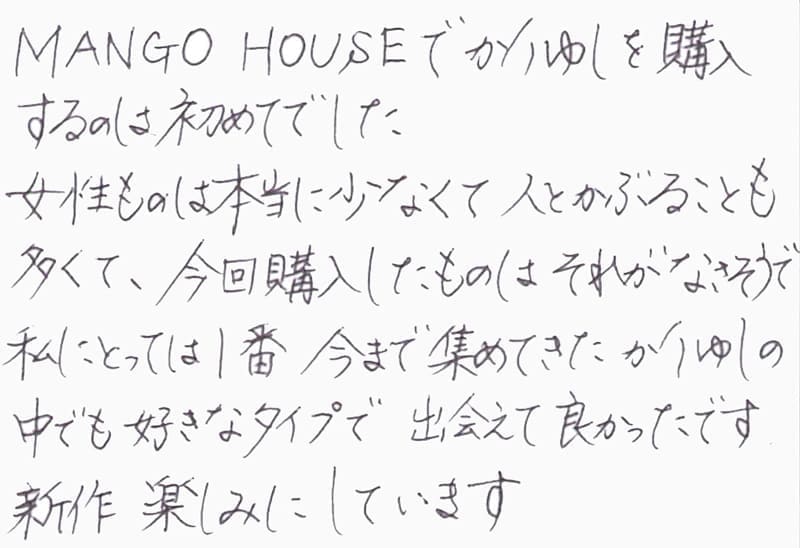 MANGO HOUSEでかりゆしを購入
するのは初めてでした
女性ものは本当に少なくて 人とかぶることも
多くて、今回購入したものは それがなさそうで
私にとっては1番 今まで集めてきた かりゆしの
中でも好きなタイプで 出会えて良かったです
新作 楽しみにしています